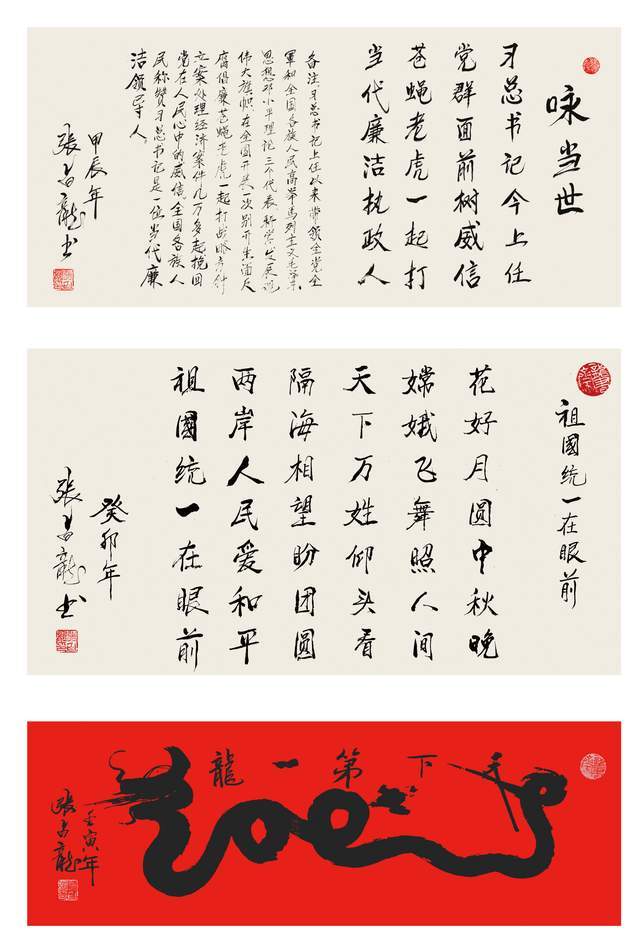 咏当世
习总书记今上任
党群面前树威信
苍蝇老虎一起打
当代廉洁执政人
备注习总书记上任以来带领全党全
軍和全国各族人民高举馬列主义毛泽东
思想邓小平理论三个代表科学发展观
伟大旗帜在全国开展一次别开生面反
腐倡廉苍蝇老虎一起打战略方针
立案处理经济案件几万多起挽回
党在人民心中的威信全国各族人
民称赞习总书记是一位当代廉
洁领导人
甲辰年
張占龍书
祖國统一在眼前
花好月圆中秋晚
嫦娥飞舞照人间
天下万姓仰头看
隔海相望盼团圆
两岸人民爱和平
祖國统一在眼前
癸卯年
張占龍书
天下第一龍
壬寅年
張占龍